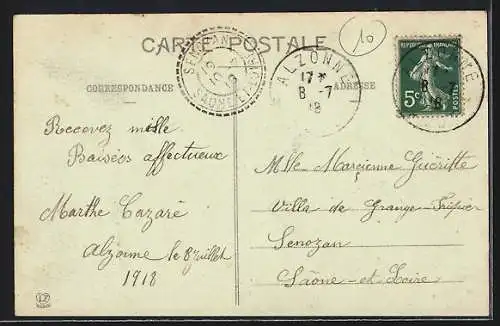 CARTE POSTALE
10
SENOZAN
SAONE-ET-LOIRE
ALZONNE
17*
8 -7
18
RÉPUBLIQUE FRANÇAISE
5c
POSTES
CORRESPONDANCE
ADRESSE
Recevez mille
Baisers affectueux
Marthe Cazaré
Alzonne le 8 juillet
1918
Mlle Marcienne Guéritte
Villa de Grange
Senozan
Saône-et-Loire